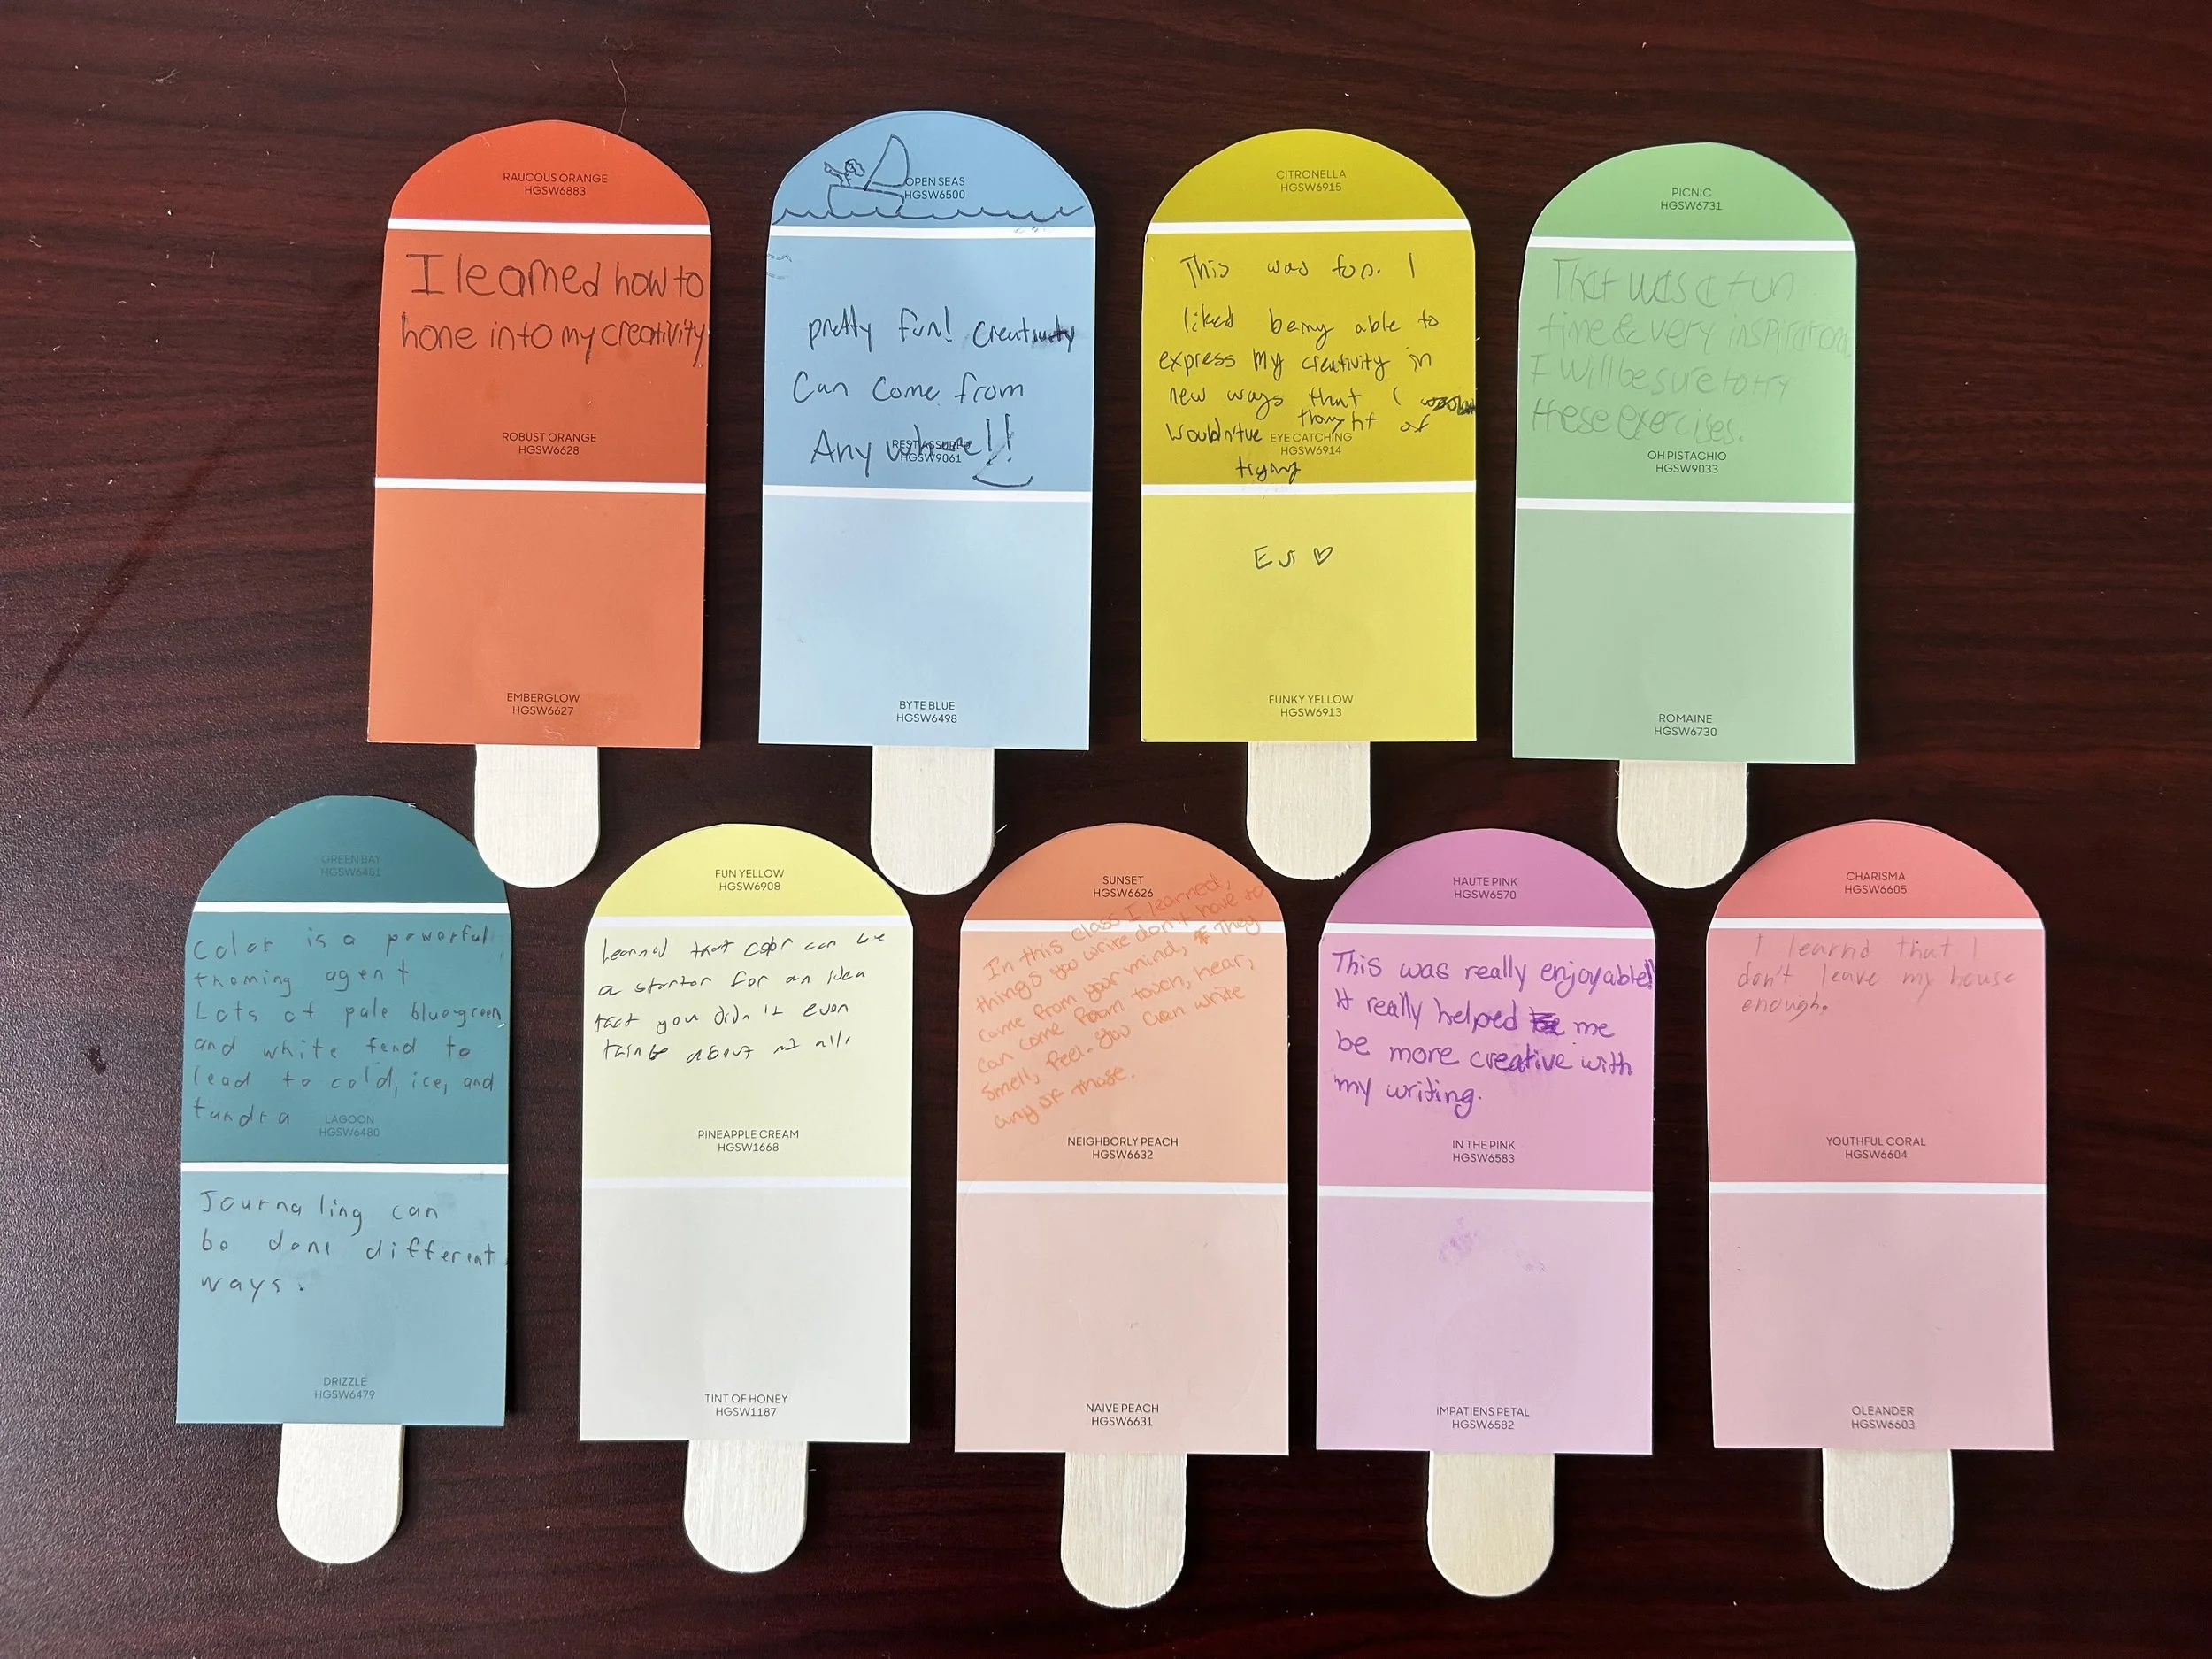 RAUCOUS ORANGE
HGSW6883
I learned how to
hone into my creativity
ROBUST ORANGE
HGSW6628
EMBERGLOW
HGSW6627
OPEN SEAS
HGSW6500
pretty fun! Creativity
Can Come from
Any where!!
REST ASSURED
HGSW9061
BYTE BLUE
HGSW6498
CITRONELLA
HGSW6915
This was fun. I
liked being able to
express my creativity in
new ways that I
wouldn'tve thought of
EYE CATCHING
HGSW6914
trying
FUNKY YELLOW
HGSW6913
PICNIC
HGSW6731
That was a fun
time & very inspirational
I will be sure to try
these exercises.
OH PISTACHIO
HGSW9033
ROMAINE
HGSW6730
GREEN BAY
HGSW6481
Color is a powerful
theming agent
Lots of pale bluegreen
and white tend to
lead to cold, ice, and
tundra
LAGOON
HGSW6480
Journaling can
be done different
ways.
DRIZZLE
HGSW6479
FUN YELLOW
HGSW6908
Learned that color can be
a starter for an idea
that you didn't even
think about at all.
PINEAPPLE CREAM
HGSW1668
TINT OF HONEY
HGSW1187
SUNSET
HGSW6626
In this class I learned,
things you write don't have to
come from your mind, They
can come from touch, hear,
smell, feel. You can write
any of those.
NEIGHBORLY PEACH
HGSW6632
NAIVE PEACH
HGSW6631
HAUTE PINK
HGSW6570
This was really enjoyable!
It really helped me
be more creative with
my writing.
IN THE PINK
HGSW6583
IMPATIENS PETAL
HGSW6582
CHARISMA
HGSW6605
I learnd that I
don't leave my house
enough.
YOUTHFUL CORAL
HGSW6604
OLEANDER
HGSW6603